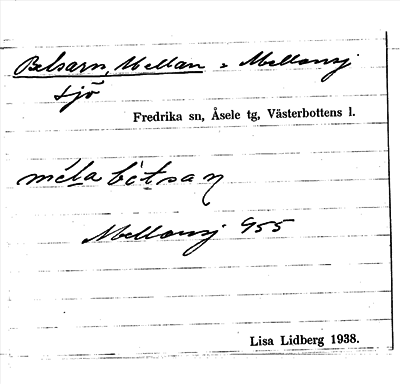 Betsarn, Mellan = Mellansj
sjö
Fredrika sn, Åsele tg, Västerbottens l.
méla bétsaṇ
Mellansj 955
Lisa Lidberg 1938.